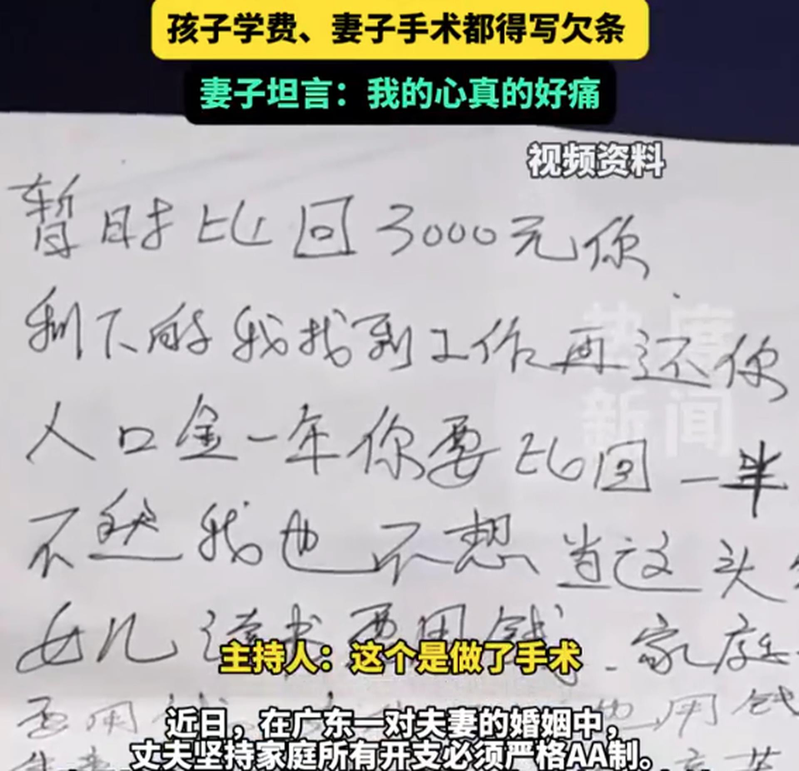 孩子学费、妻子手术都得写欠条
妻子坦言：我的心真的好痛
视频资料
暂时比回3000元你
剩下的我找到工作再还你
热度
新闻
人口金一年你要比回一半
不然我也不想当这头
女儿读书要用钱.家庭
主持人：这个是做了手术
要用钱 用钱
近日，在广东一对夫妻的婚姻中，
丈夫坚持家庭所有开支必须严格AA制。